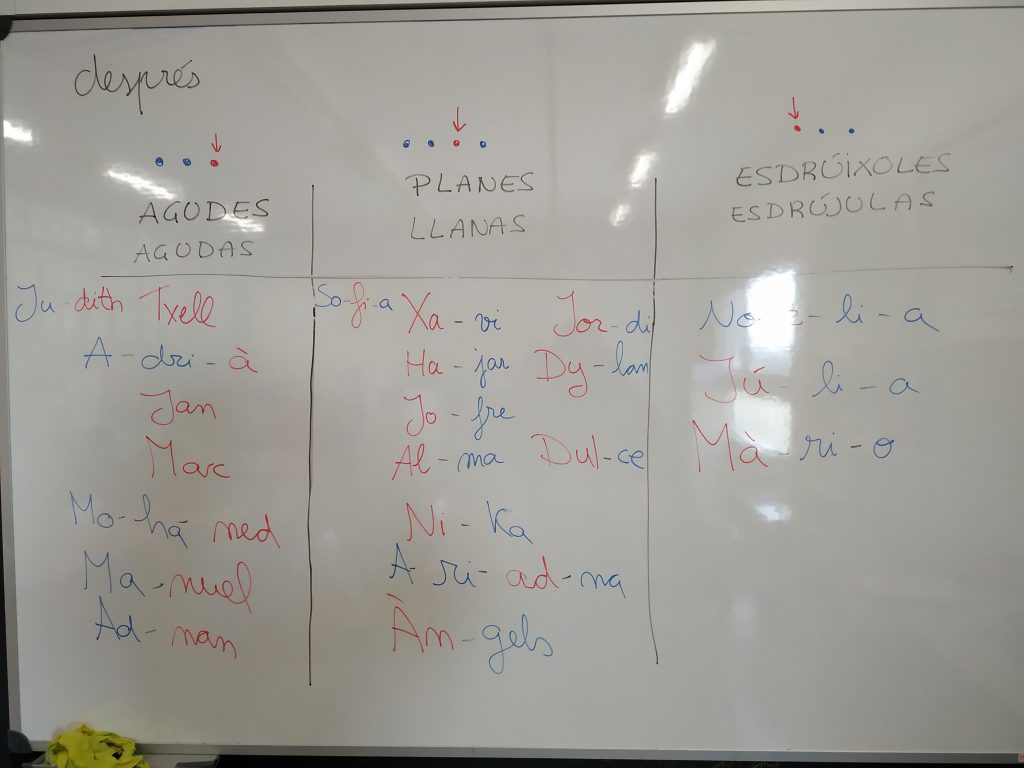 després
AGUDES
AGUDAS
Ju-dith Txell
A-dri-à
Jan
Marc
Mo-ha-med
Ma-nuel
Ad-nan
PLANES
LLANAS
So-fi-a Xa-vi Jor-di
Ha-jar Dy-lan
Jo-fre
Al-ma Dul-ce
Ni-Ka
A-ri-ad-na
Àn-gels
ESDRÚIXOLES
ESDRÚJULAS
li-a
Jú-li-a
Mà-ri-o